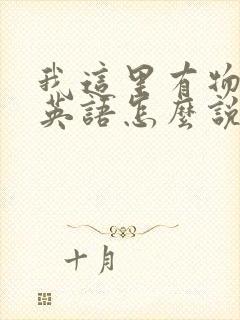 我這里有物
英語怎麼說
十月